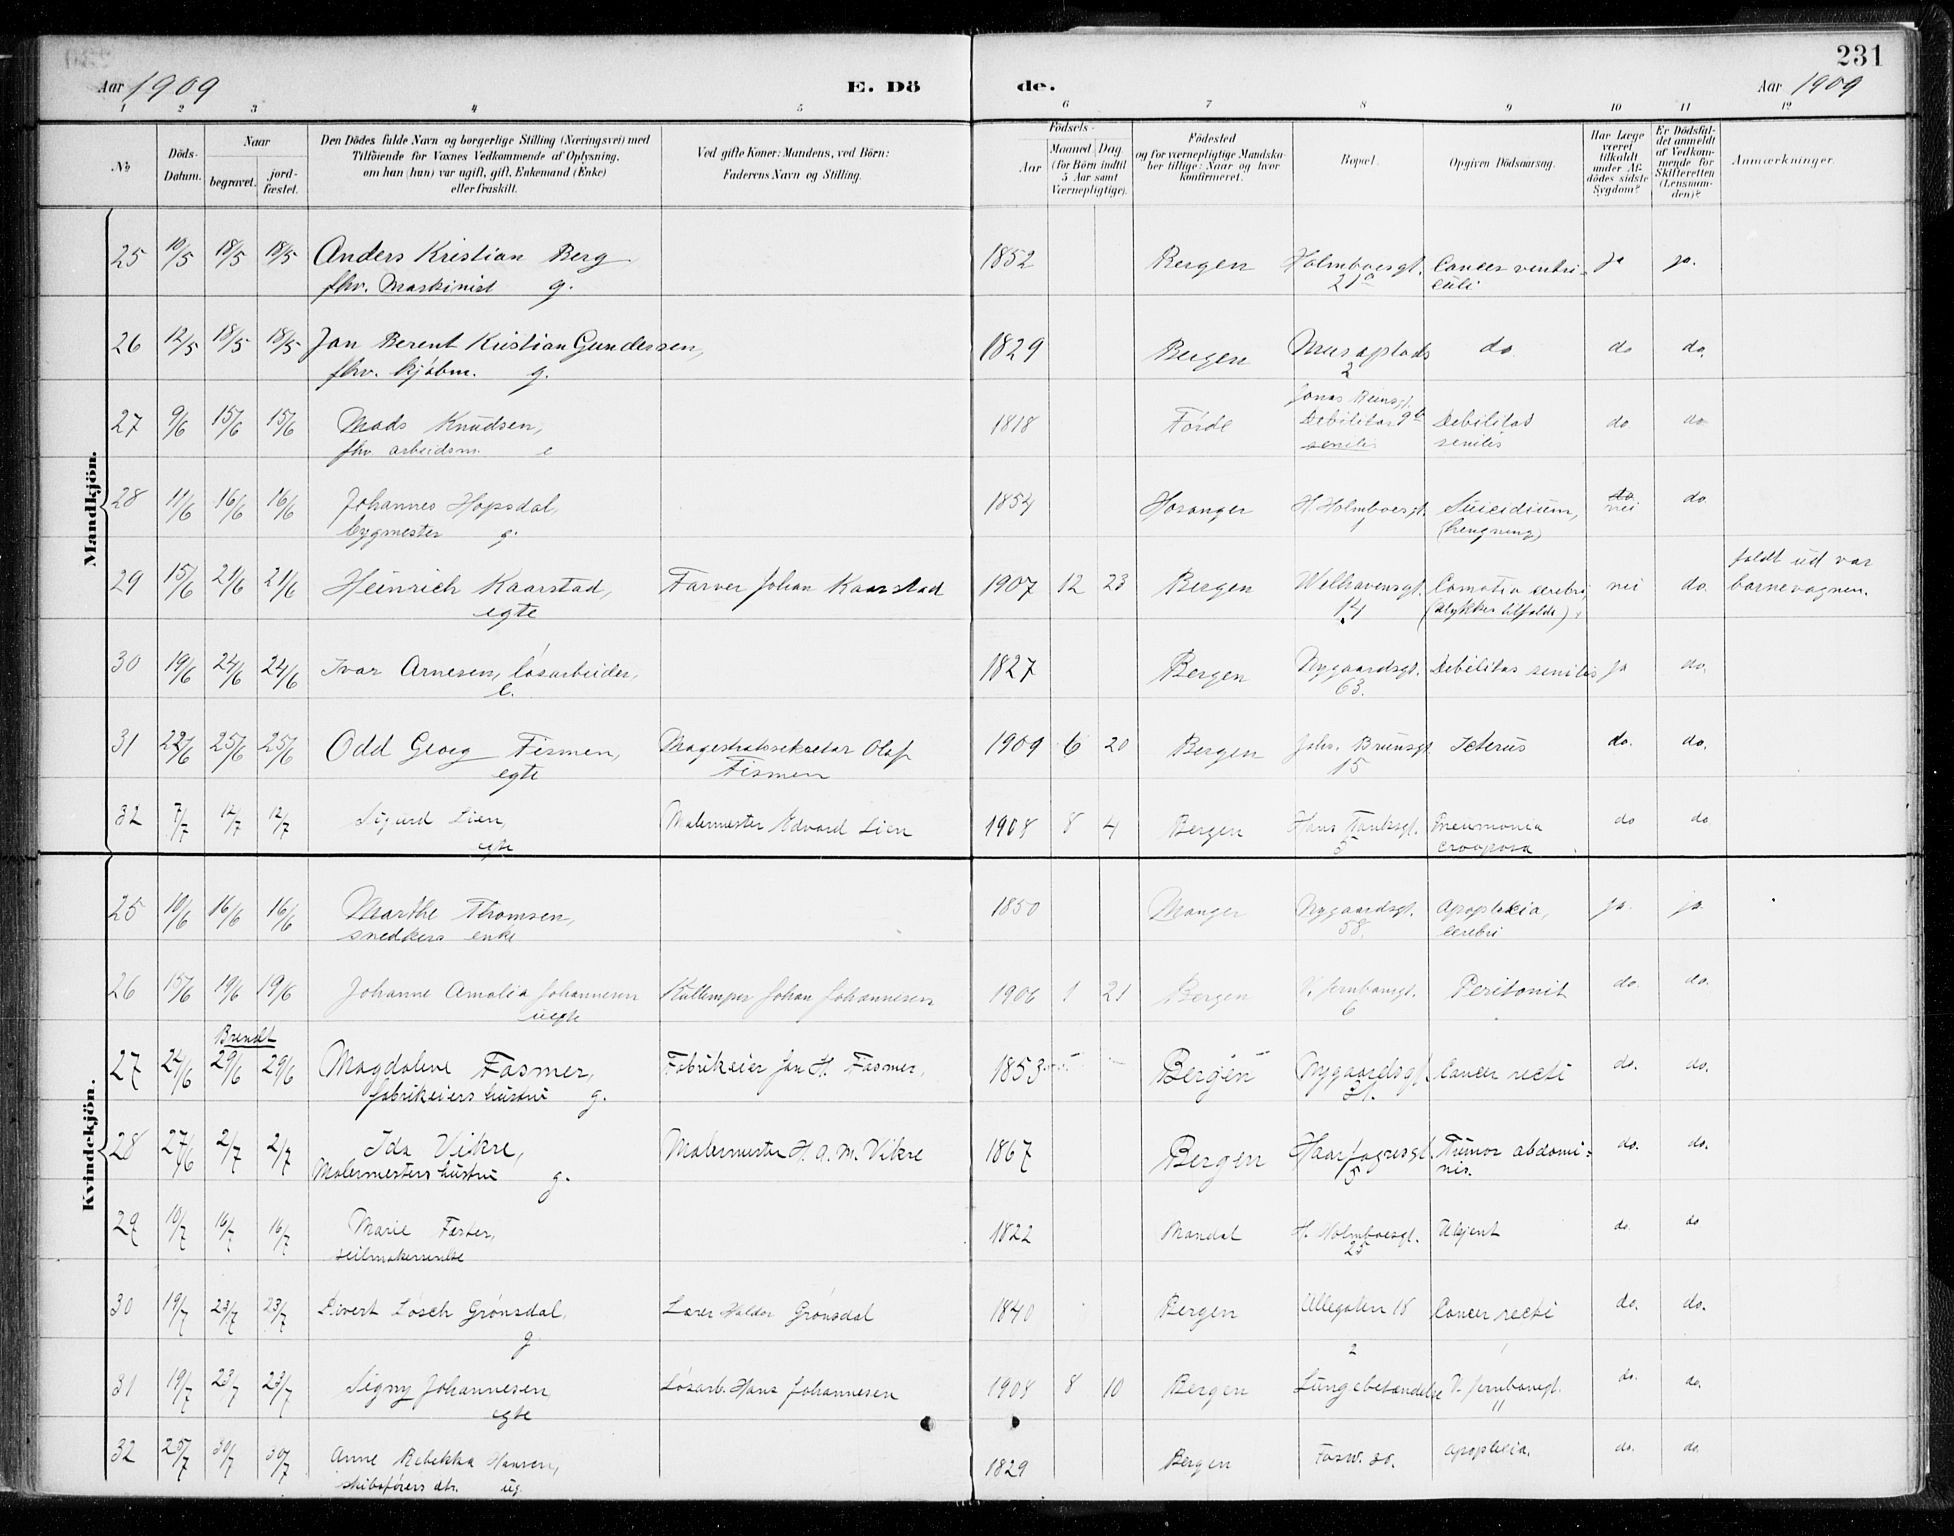 231
Aar 1909
E. Dö
de.
Aar 1909
1 2 3 4 5 6 7 8 9 10 11 12
№
Döds-Datum.
Naar
begravet.
jord-fæstet.
Den Dödes fulde Navn og borgerlige Stilling (Næringsvei) med
Tilföiende for Voxnes Vedkommende af Oplysning,
om han (hun) var ugift, gift, Enkemand (Enke)
eller fraskilt.
Ved gifte Koner: Mandens, ved Börn:
Faderens Navn og Stilling.
Födsels-
Aar
Maaned Dag
(for Börn indtil
5 Aar samt
Værnepligtige).
Födested
og for værnepligtige Mandska-
ber tillige: Naar og hvor
konfirmeret.
Bopæl.
Opgiven Dödsaarsag.
Har Læge
været
tilkaldt
under Af-
dödes sidste
Sygdom?
Er Dödsfal-
det anmeldt
af Vedkom-
mende for
Skifteretten
(Lensman-
den)?
Anmærkninger.
Mandkjön.
25 10/5 18/5 18/5 Anders Kristian Berg 1852 Bergen Holmboesgt. Cancer ventri- ja ja.
fhv. Maskinist g. 21a culi
26 12/5 18/5 18/5 Jan Berent Kristian Gundersen, 1829 Bergen Museplads do. do do.
fhv. kjøbm. g. 2
Jonas Reinsgt.
27 9/6 15/6 15/6 Mads Knudsen, 1818 Førde Debilitas 9b Debilitas do do
fhv. arbeidsm. e senilis senilis
28 11/6 16/6 16/6 Johannes Hopsdal, 1854 Hosanger H. Holmboesgt. Suicidium, do do.
bygmester g. 1 (hengning) nei
faldt ud var
29 15/6 21/6 21/6 Heinrich Kaarstad, Farver Johan Kaarstad 1907 12 23 Bergen Welhavensgt. Comotio cerebri nei do. barnevognen.
egte 14 (ulykkes tilfælde)
30 19/6 24/6 24/6 Ivar Arnesen, løsarbeider, 1827 Bergen Nygaardsgt. Debilitas senilis ja do.
e. 63.
31 22/6 25/6 25/6 Odd Georg Fismen, Magestratssekretær Olaf 1909 6 20 Bergen Johs. Brunsgt. Icterus do. do.
egte Fismen 15
32 7/7 12/7 12/7 Sigurd Lien, Malermester Edvard Lien 1908 8 4 Bergen Hans Tanksgt. Pneumonia do do
egte 5 crouposa
Kvindekjön.
25 10/6 16/6 16/6 Marthe Thomsen, 1850 Manger Nygaardsgt. Apoplexia, ja. ja
snedkers enke 58. cerebri
26 15/6 19/6 19/6 Johanne Amalia Johannesen Kullemper Johan Johannesen 1906 1 21 Bergen V. Jernbanegt. Peritonit do. do.
uegte 6
Brendt
27 24/6 29/6 29/6 Magdalene Fasmer, Fabrikeier Jan H. Fasmer, 1853 Bergen Nygaardsgt. Cancer recti do. do.
fabrikeiers hustru g. 31.
28 27/6 2/7 2/7 Ida Vikre, Malermester H. A. M. Vikre 1867 Bergen Haarfagresgt. Tumor abdomi- do. do.
Malermesters hustru g. 5 nis.
29 10/7 16/7 16/7 Marie Fester, 1822 Mandal H. Holmboesgt. Ukjent do. do
seilmakerenke 25
30 19/7 23/7 23/7 Sivert Løsch Grønsdal, Lærer Haldor Grønsdal 1840 Bergen Allegaten 18 Cancer recti do. do.
g
2 1
31 19/7 23/7 23/7 Signy Johannesen, Løsarb. Hans Johannesen 1908 8 10 Bergen Lungebetændelse V. Jernbanegt. do. do.
egte 11
32 25/7 30/7 30/7 Anne Rebekka Hansen, 1829 Bergen Fosw. 20. apoplexia. do. do.
skibsførers dtr. ug.